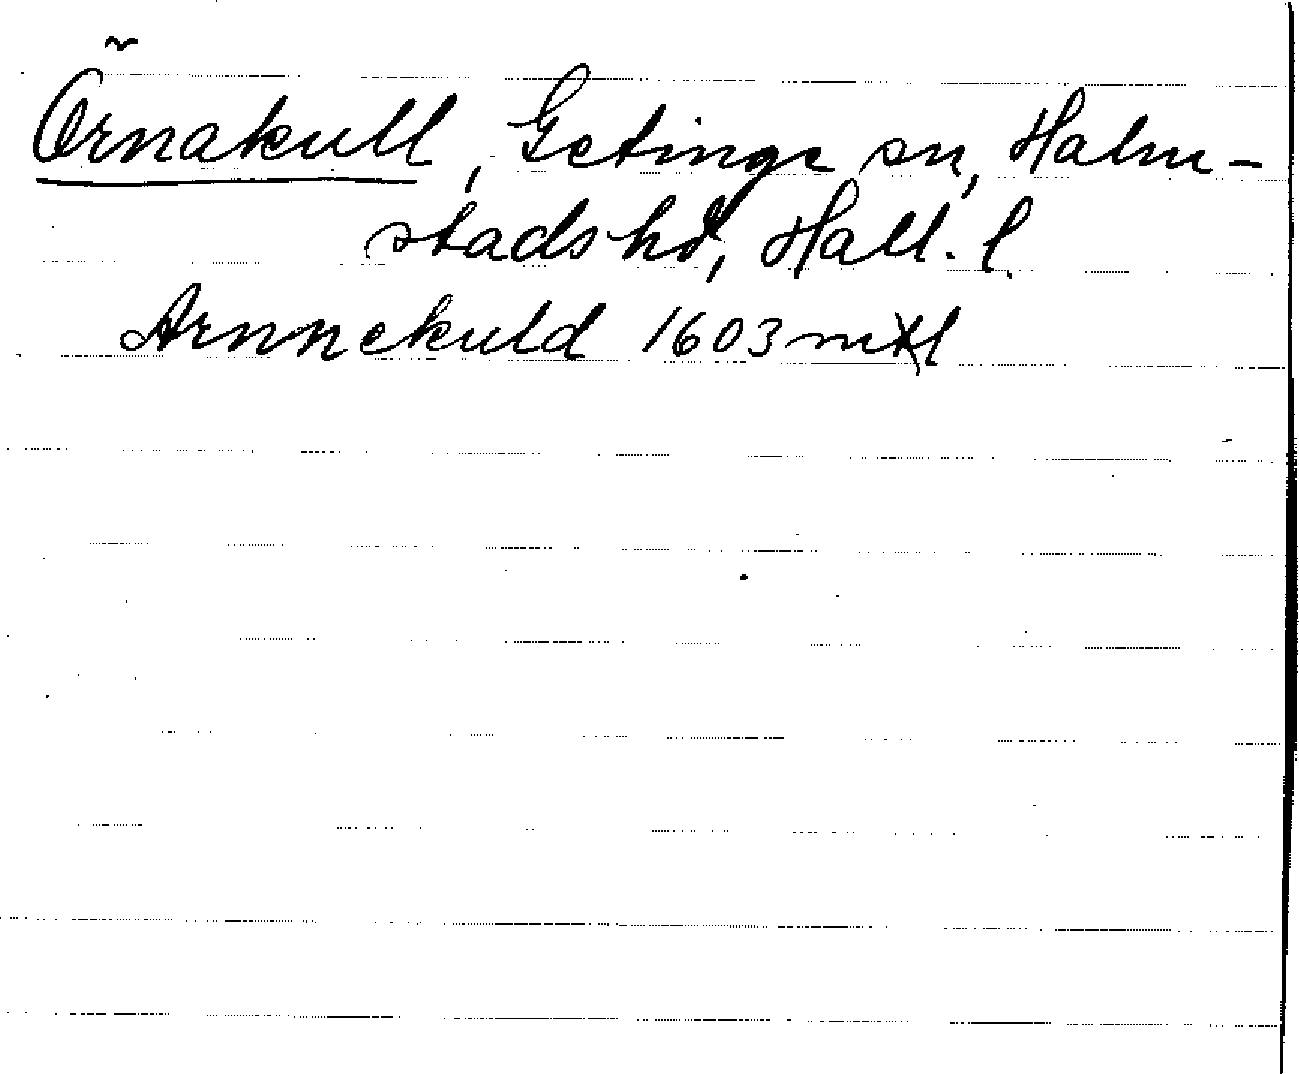 Örnakull, Getinge sn, Halm-
stads hd, Hall. l.
Arnnekuld 1603 mtl